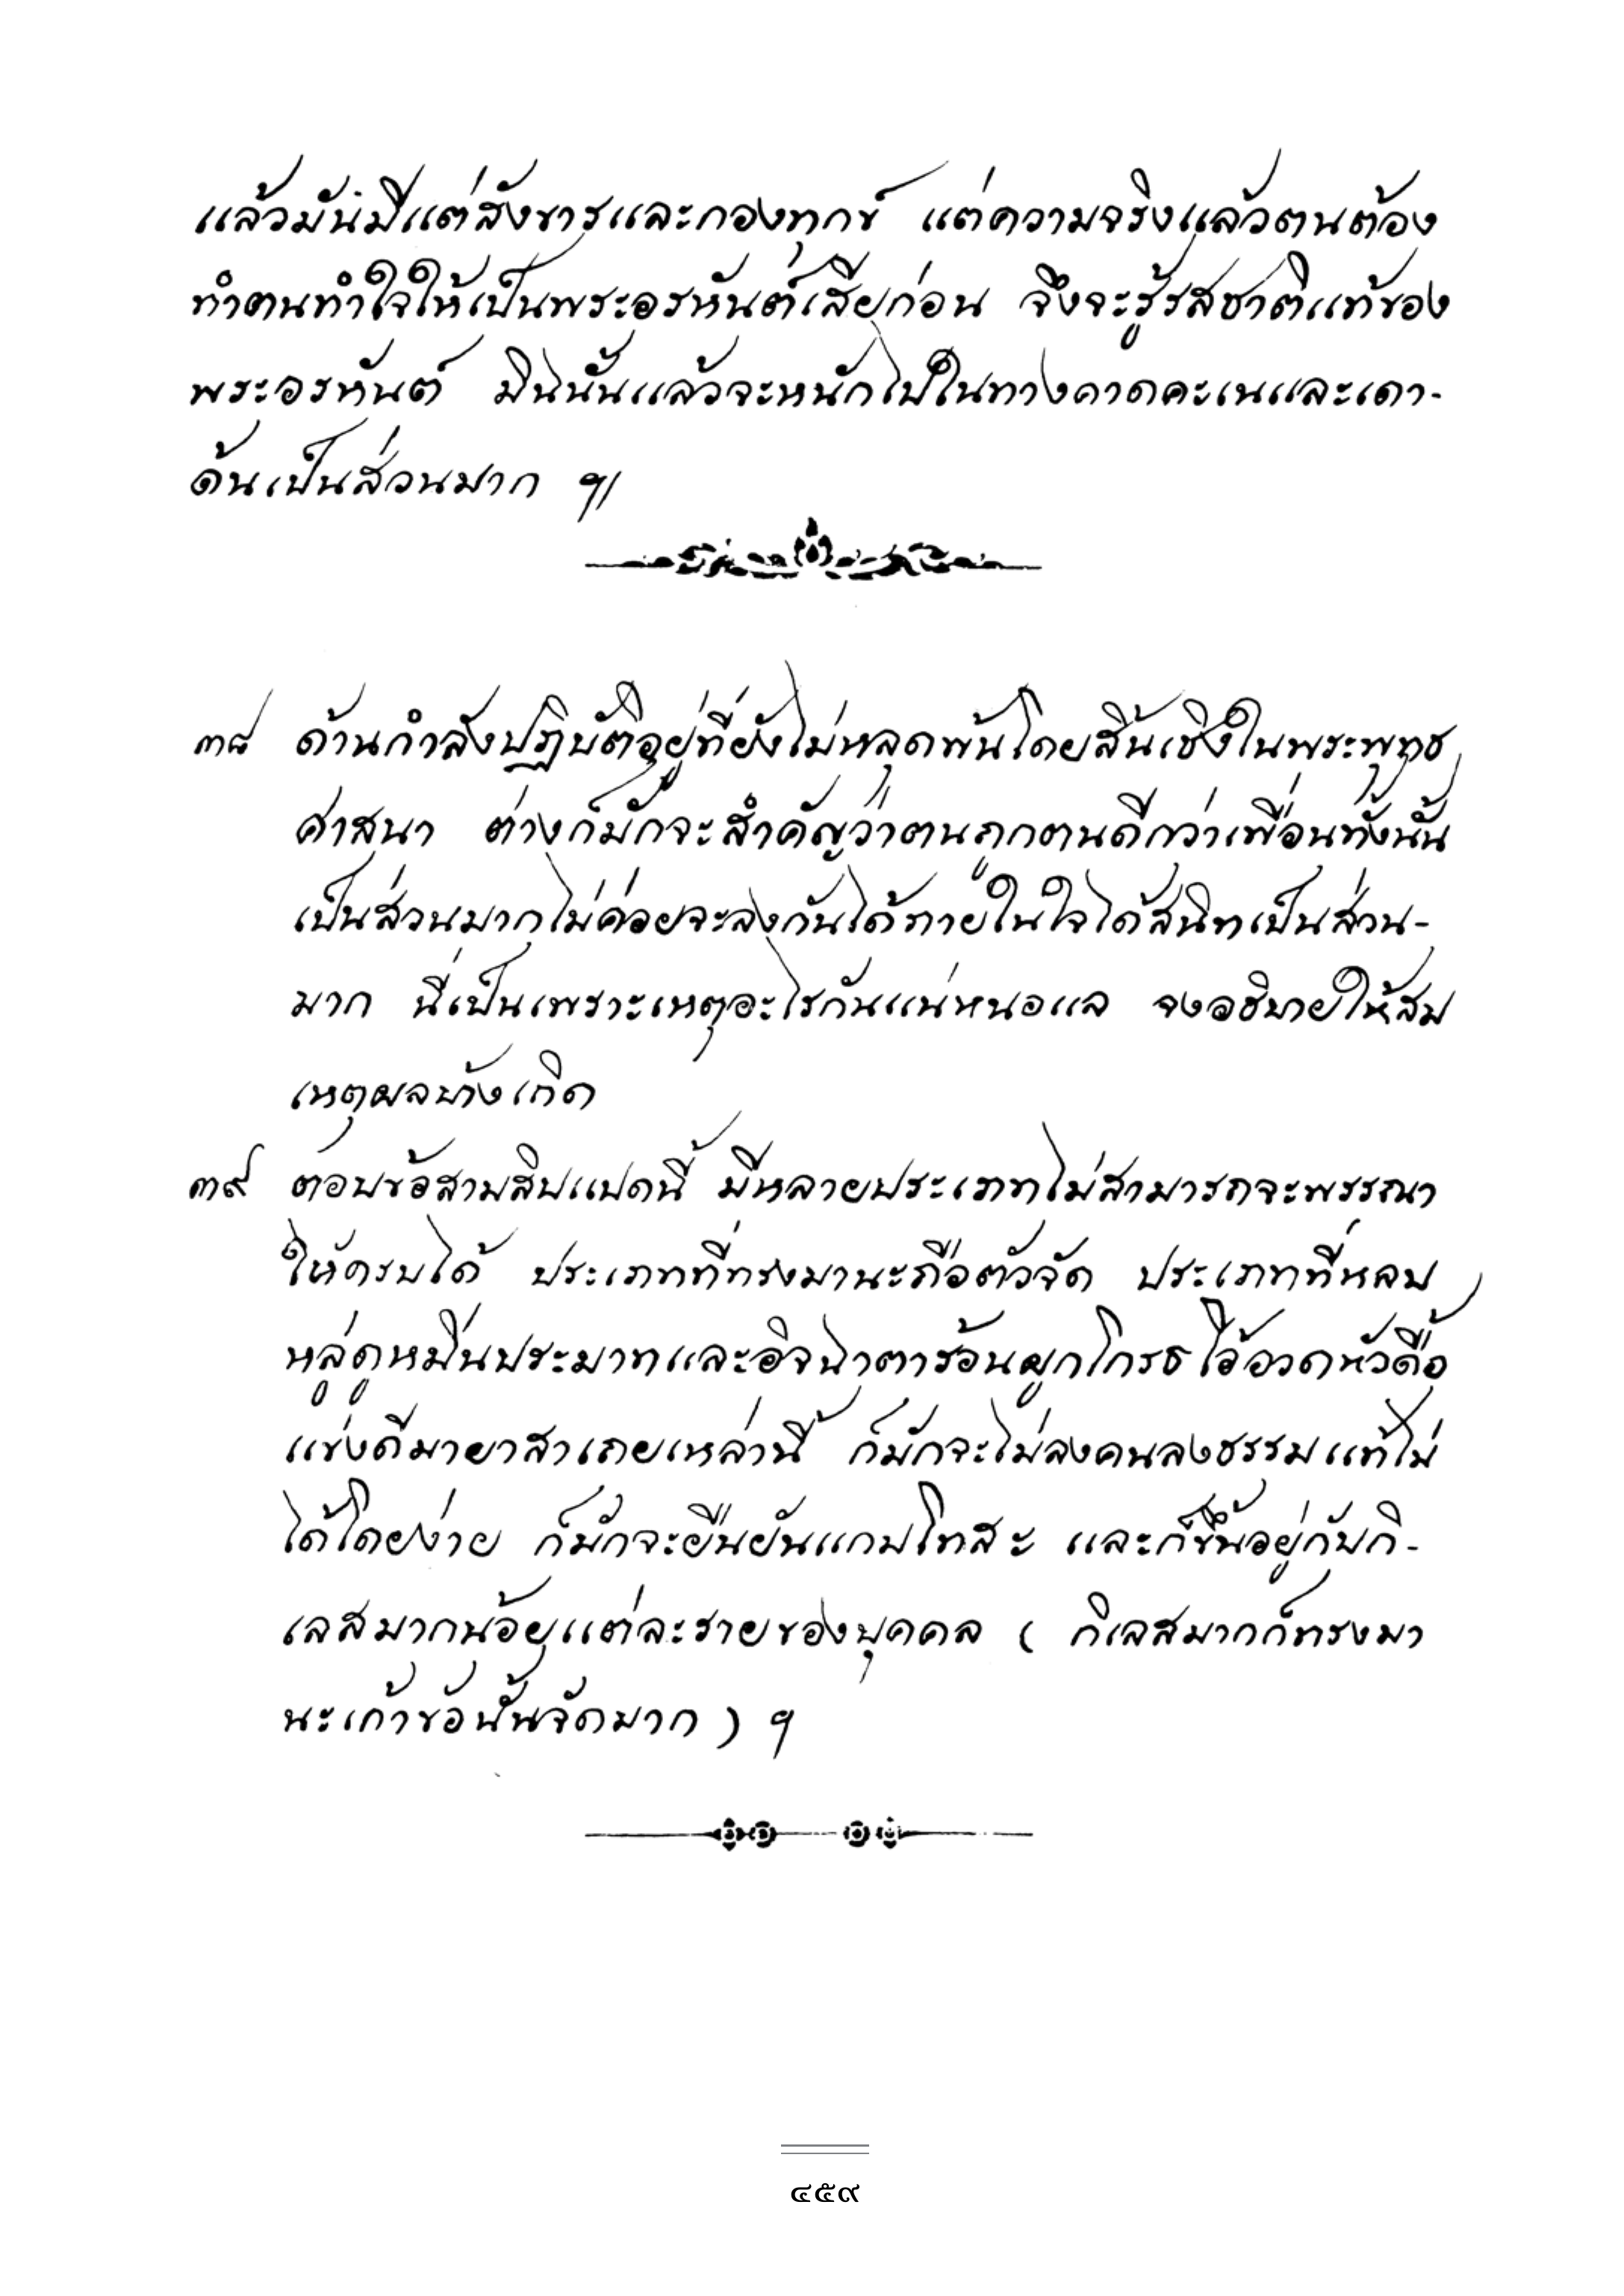 แล้วมันมีแต่สังขารและกองทุกข์ แต่ความจริงแล้วตนต้อง
ทำตนทำใจให้เป็นพระอรหันต์เสียก่อน จึงจะรู้รสชาติแท้ของ
พระอรหันต์ มินั้นแล้วจะหนักไปในทางคาดคะเนและเดา-
ด้นเป็นส่วนมาก ฯ/
๓๘ ด้านกำลังปฏิบัติอยู่ที่ยังไม่หลุดพ้นโดยสิ้นเชิงในพระพุทธ
ศาสนา ต่างก็มักจะสำคัญว่าตนถูกตนดีกว่าเพื่อนทั้งนั้น
เป็นส่วนมากไม่ค่อยจะลงกันได้ภายในใจได้สนิทเป็นส่วน-
มาก นี่เป็นเพราะเหตุอะไรกันแน่หนอแล จงอธิบายให้สม
เหตุผลบ้างเถิด
๓๙ ตอบข้อสามสิบแปดนี้ มีหลายประเภทไม่สามารถจะพรรณา
ให้ครบได้ ประเภทที่ทรงมานะถือตัวจัด ประเภทที่หลบ
หลู่ดูหมิ่นประมาทและอิจฉาตาร้อนผูกโกรธโอ้อวดหัวดื้อ
แข่งดีมายาสาเถยเหล่านี้ ก็มักจะไม่ลงคนลงธรรมแท้ไม่
ได้โดยง่าย ก็มักจะยืนยันแกมโทสะ และก็ขึ้นอยู่กับกิ-
เลสมากน้อยแต่ละรายของบุคคล ( กิเลสมากก็ทรงมา
นะเก้าข้อนั้นจัดมาก ) ฯ
๔๕๙